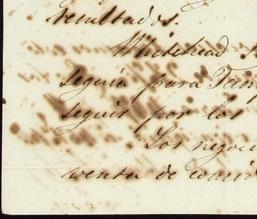 resultados.
Whitehead
seguía para Tam
seguir por los
Los negoci
venta de